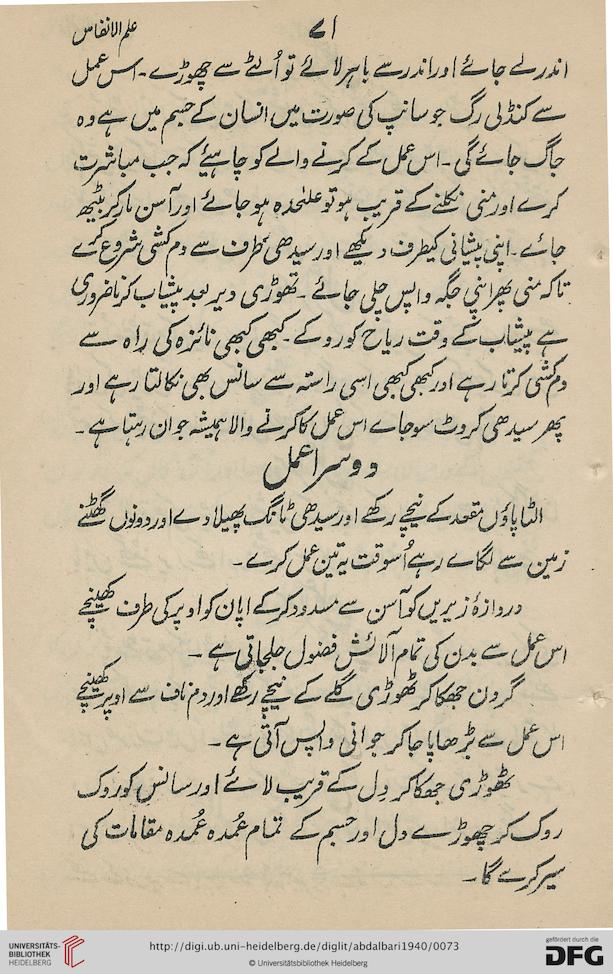 علم الانفاس
۷۱
اندر لے جائے اور اندر سے باہر لائے تو اُلٹے سے چھوڑے۔ اس عمل
سے کنڈلی رگ جو سانپ کی صورت میں انسان کے جسم میں ہے وہ
جاگ جائے گی۔ اس عمل کے کرنے والے کو چاہیئے کہ جب مباشرت
کرے اور منی نکلنے کے قریب ہو تو علیٰحدہ ہو جائے اور آسن مار کر بیٹھ
جائے۔ اپنی پیشانی کیطرف دیکھے اور سیدھی طرف سے دم کشی شروع کرے
تاکہ منی پھر اپنی جگہ واپس چلی جائے۔ تھوڑی دیر بعد پیشاب کرنا ضروری
ہے پیشاب کے وقت ریاح کو روکے۔ کبھی کبھی نائزہ کی راہ سے
دم کشی کرتا رہے اور کبھی کبھی اسی راستہ سے سانس بھی نکالتا رہے اور
پھر سیدھی کروٹ سو جاے اس عمل کا کرنے والا ہمیشہ جوان رہتا ہے۔
دوسرا عمل
الٹا پاؤں مقعد کے نیچے رکھے اور سیدھی ٹانگ پھیلا دے اور دونوں گھٹنے
زمین سے لگاے رہے اُسوقت یہ تین عمل کرے۔
دروازۂ زیریں کو آسن سے مسدود کرکے اپان کو اوپر کی طرف کھینچے
اس عمل سے بدن کی تمام آلائش فضول جلجاتی ہے۔
گردن جھکا کر ٹھوڑی گلے کے نیچے رکھے اور دم ناف سے اوپر کھینچے
اس عمل سے بڑھاپا جا کر جوانی واپس آتی ہے۔
ٹھوڑی جھکا کر دِل کے قریب لائے اور سانس کو روک
روک کر چھوڑے دل اور جسم کے تمام عُمدہ عُمدہ مقامات کی
سیر کرے گا۔
UNIVERSITÄTS-
BIBLIOTHEK
HEIDELBERG
http://digi.ub.uni-heidelberg.de/diglit/abdalbari1940/0073
© Universitätsbibliothek Heidelberg
gefördert durch die
DFG